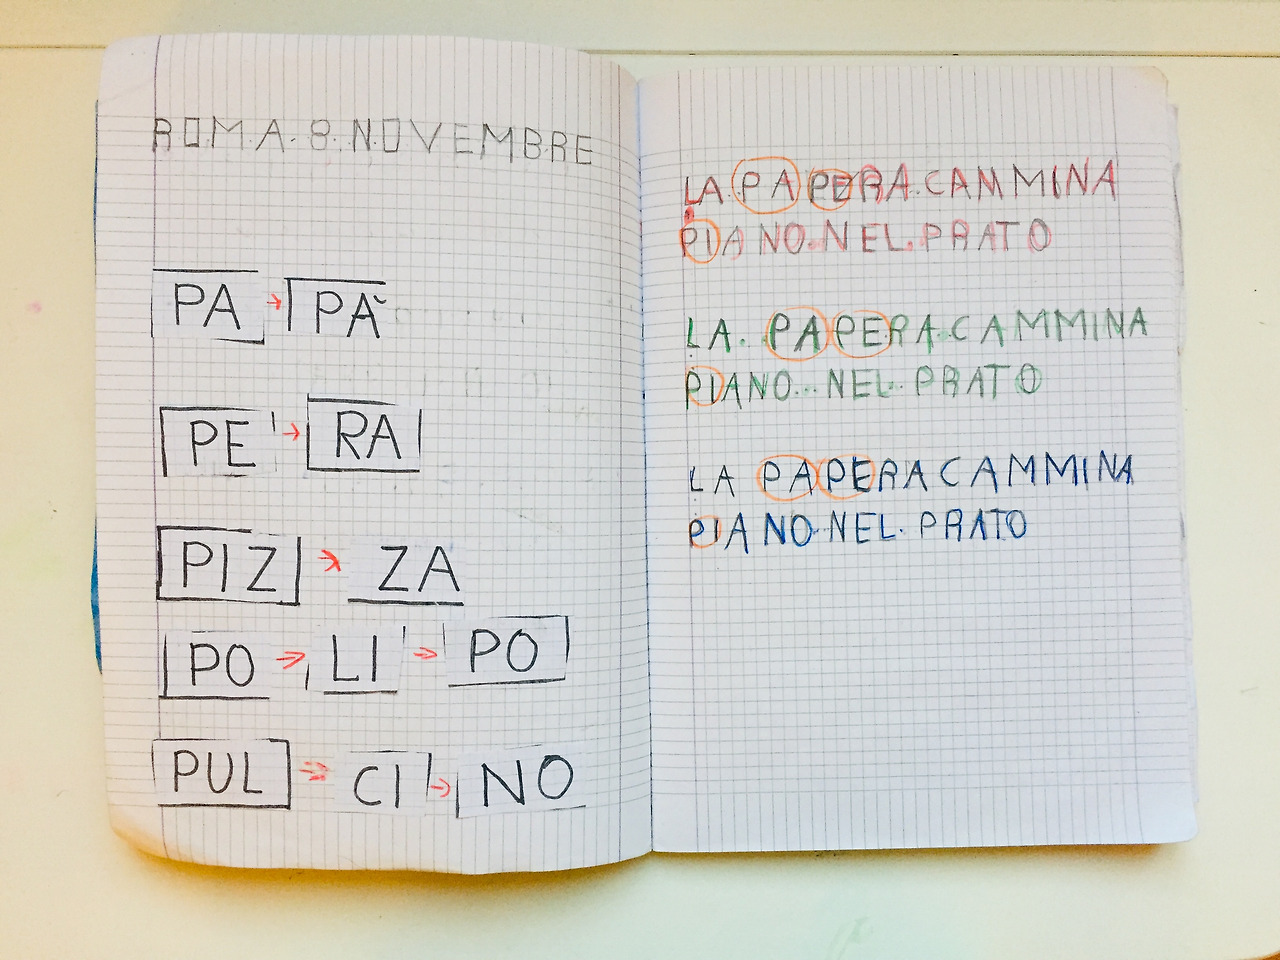 ROMA.8.NOVEMBRE
PA → PÀ
PE → RA
PIZ → ZA
PO → LI → PO
PUL → CI → NO
LA.PAPERA.CAMMINA
PIANO.NEL.PRATO
LA. PAPERA.CAMMINA
PIANO...NEL..PRATO
LA PAPERA CAMMINA
PIANO.NEL.PRATO